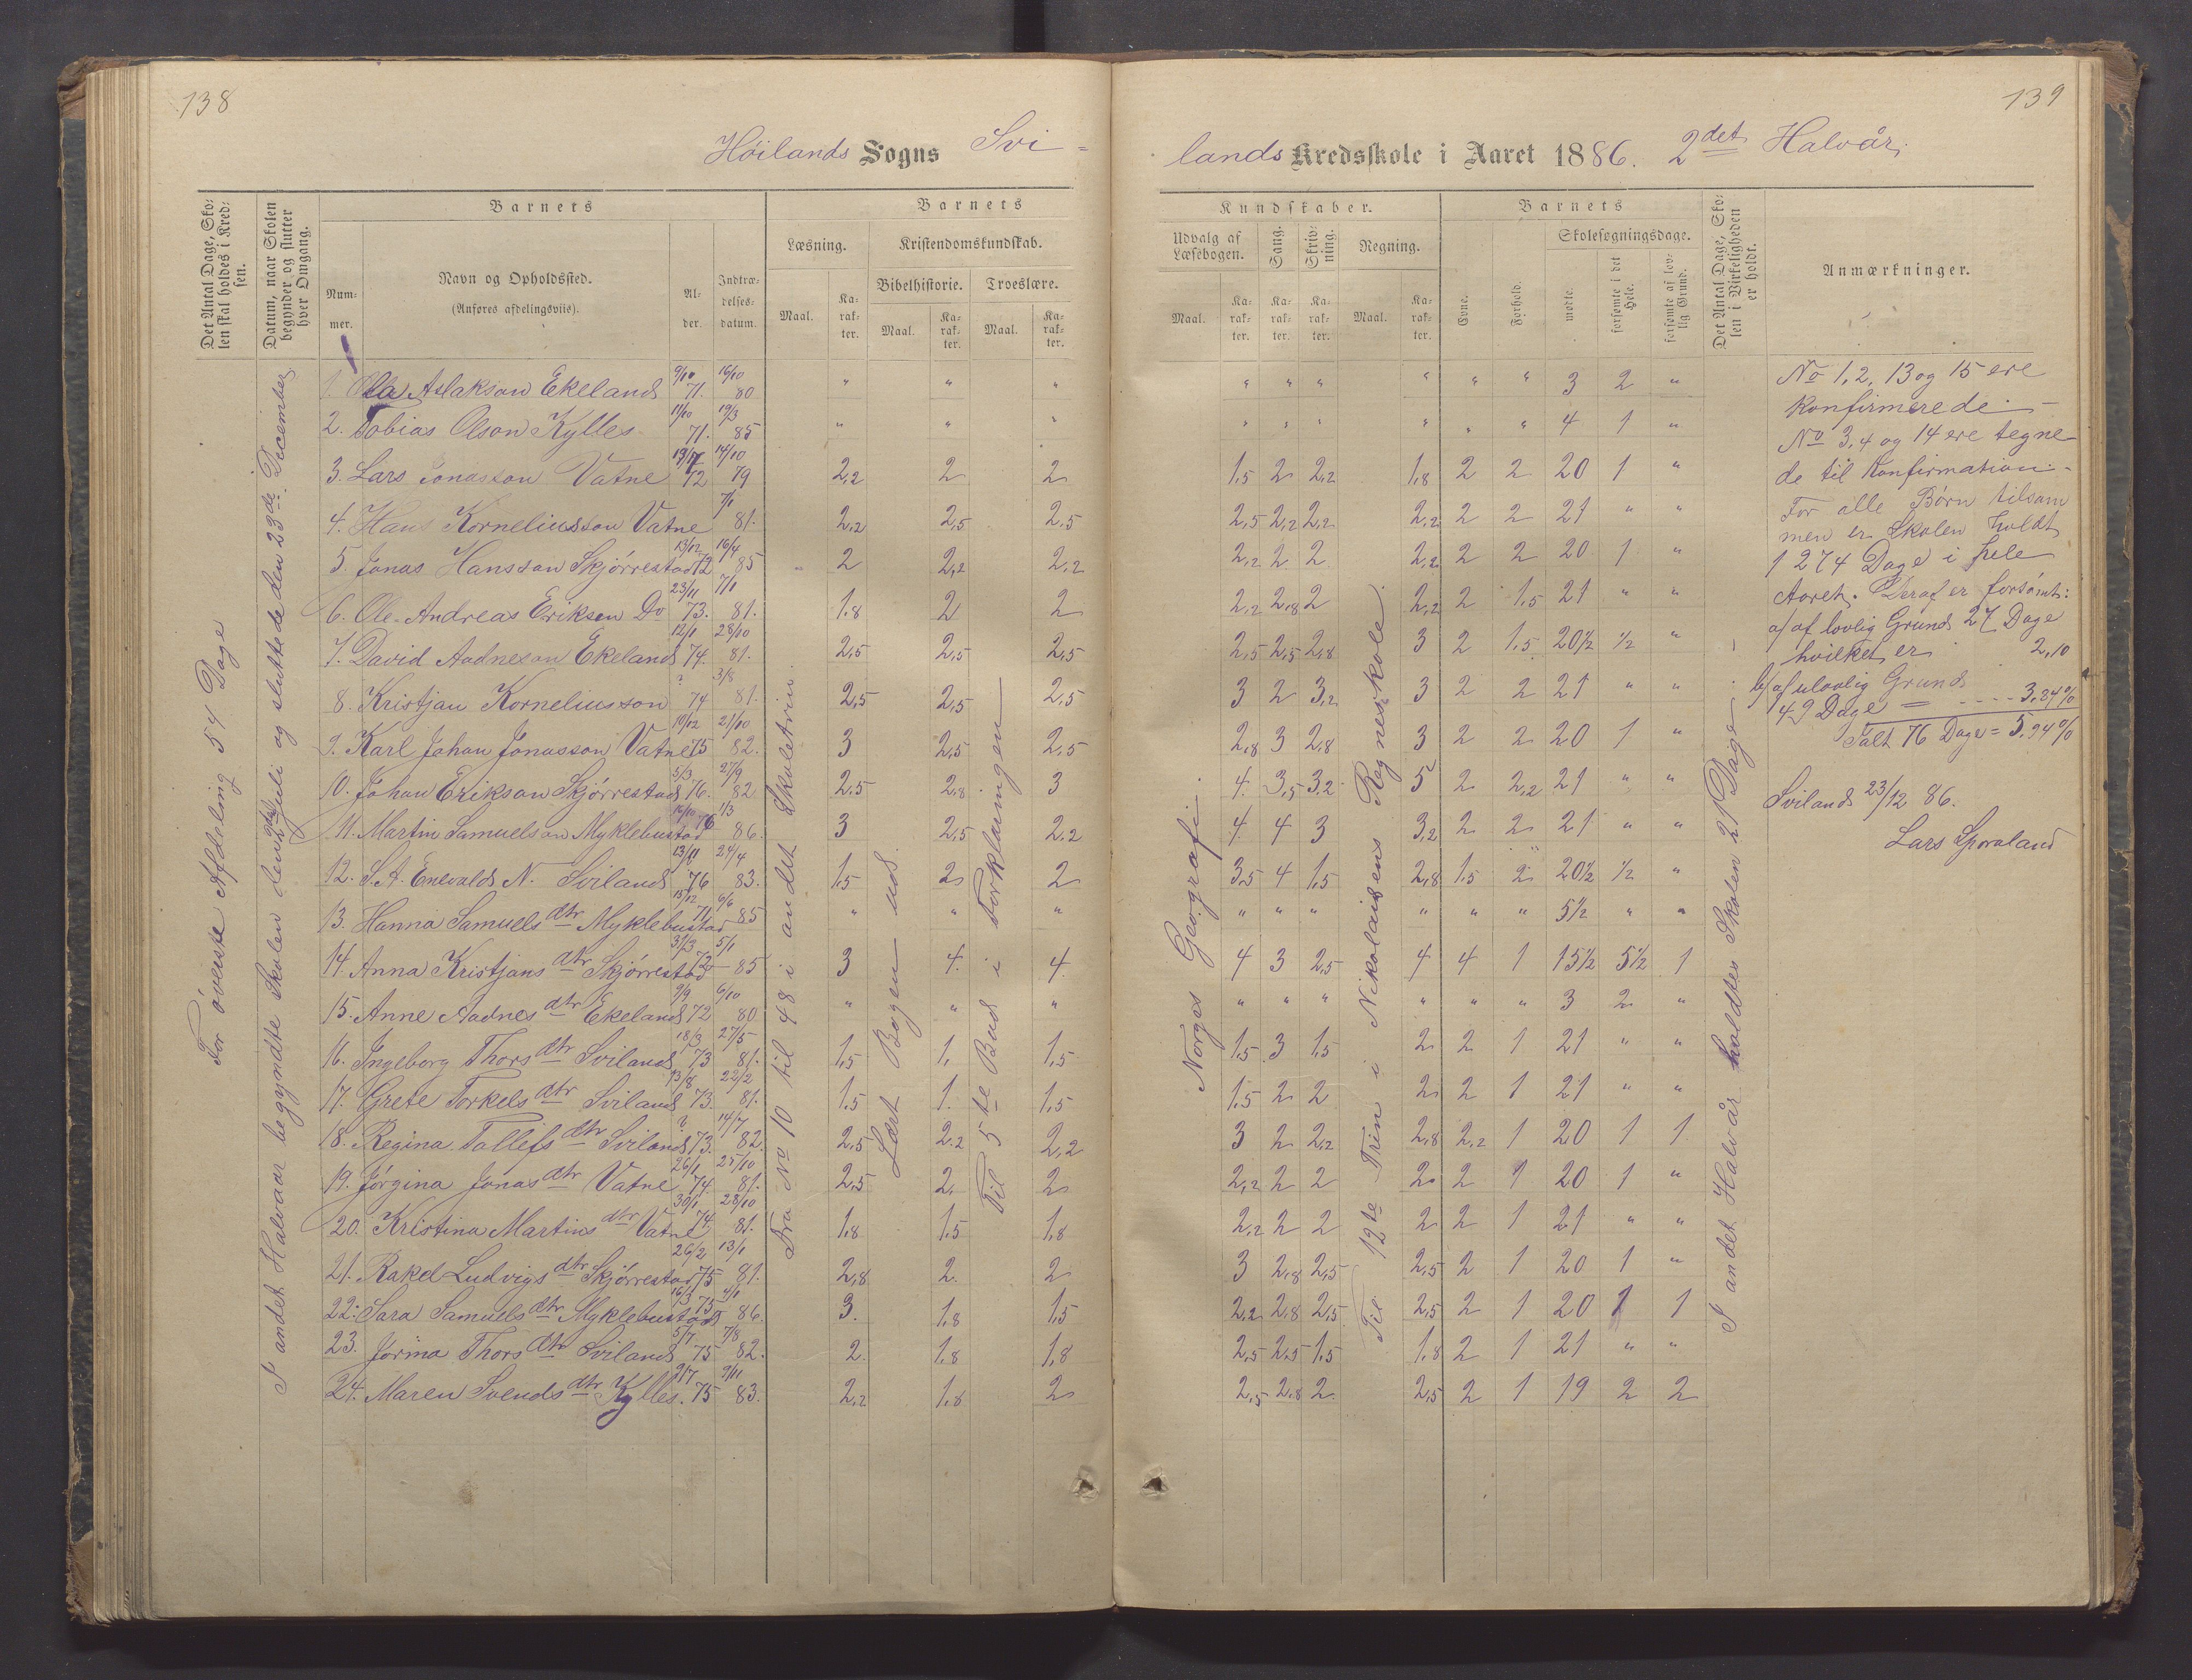 138
139
Höilands Sogns Svi-
lands Kredsskole i Aaret 1886. 2det Halvår.
Det Antal Dage, Sko-
len skal holdes i Kred-
sen.
Datum, naar Skolen
begynder og slutter
hver Omgang.
Barnets
Num-
mer.
Navn og Opholdssted.
(Anføres afdelingsviis).
Al-
der.
Indtræ-
delses-
datum.
Barnets
Læsning.
Kristendomskundskab.
Bibelhistorie. Troeslære.
Maal. Ka-
rak-
ter.
Maal. Ka-
rak-
ter.
Maal. Ka-
rak-
ter.
Kundskaber.
Udvalg af
Læsebogen.
Sang.
Skriv-
ning.
Regning.
Maal. Ka-
rak-
ter.
Ka-
rak-
ter.
Ka-
rak-
ter.
Maal. Ka-
rak-
ter.
Barnets
Evne.
Forhold.
Skolesøgningsdage.
mødte.
forsømte i det
Hele.
forsømte af lov-
lig Grund.
Det Antal Dage, Sko-
len i Virkeligheden
er holdt.
Anmærkninger.
For överste Afdeling 54 Dage
I andet Halvaar begyndte Skolen den 2den Juli og sluttede den 23de December
Fra No 10 til 48 i andet Skoletrin.
Lært Bogen ud.
Til 5te Bud i Forklaringen
Norges Geografi.
Til 12te Trin i Nikolaisens Regneskole.
I andet Halvår holdtes Skolen 21 Dage.
1. Ola Aslakson Ekeland 9/10 71. 16/10 80 " " " " " " " " " 3 2 "
2. Tobias Olson Kylles 11/10 71. 19/3 85 " " " " " " " " " 4 1 "
3. Lars Jonasson Vatne 72 14/10 79 2,2 2 2 1,5 2 2,2 1,8 2 2 20 1 "
4. Hans Korneliusson Vatne 7/1 81. 2,2 2,5 2,5 2,5 2,2 2,2 2,2 2 2 21 " "
5. Jonas Hansson Skjörrestad 13/12 72 16/4 85 2 2,2 2,2 2,2 2 2 2,2 2 2 20 1 "
6. Ole Andreas Eriksen Do 23/11 73. 7/1 81. 1.8 2 2 2,2 2,8 2 2,2 2 1,5 21 " "
7. David Aadneson Ekeland 12/1 74. 28/10 81. 2,5 2,5 2,5 2,5 2,5 2,8 3 2 1,5 20½ ½ "
8. Kristjan Korneliusson ? 74 3/8 81. 2,5 2,5 2,5 3 2 3,2 3 2 2 21 " "
9. Karl Johan Jonasson Vatne 10/12 75 21/10 82. 3 2,5 2,5 2,8 3 2,8 3 2 2 20 1 "
10. Johan Erikson Skjörrestad 5/3 76. 27/9 82 2,5 2,8 3 4. 3,5 3,2 5 2 2,2 21 " "
11. Martin Samuelson Myklebustad 76 1/3 86. 3 2,5 2,2 4. 4 3 3,2 2 2 21 " "
12. S. A. Enevalds N. Sviland 76 24/4 83. 1,5 2 2 3,5 4 1,5 2,8 1,5 2 20½ ½ "
13. Hanna Samuelsdtr Myklebustad 15/12 71 6/6 85 " " " " " " " " " 5½ " "
14. Anna Kristjansdtr Skjörrestad 72 5/1 85 3 4. 4 4 3 2,5 4 4 1 15½ 5½ 1
15. Anne Aadnesdtr Ekeland 9/9 72 6/10 80 " " " " " " " " " 3 2 "
16. Ingeborg Thorsdtr Sviland 18/3 73 27/5 81. 1,5 1. 1,5 1,5 3 1,5 2 2 1 21 " "
17. Grete Torkelsdtr Sviland 13/8 73. 22/2 81. 1.5 1. 1,5 1,5 2 2 2 2 1 21 " "
18. Regina Tollefsdtr Sviland ? 73. 14/7 82. 2,5 2.2 2,2 3 2 2,2 2,8 2,2 1 20 1 1
19. Jörgina Jonasdtr Vatne 26/1 74. 25/10 81. 2,5 2. 2 2,2 2 2 2 2 1 20 1 "
20. Kristina Martinsdtr Vatne 30/1 74. 28/10 81. 1,8 1,5 1,8 2,2 2 2 2 2 1 21 " "
21. Rakel Ludvigsdtr Skjörrestad 26/2 75 13/1 81. 2,8 2. 2 3 2,8 2,5 2,5 2 1 20 1 "
22. Sara Samuelsdtr Myklebustad 16/3 75 4/1 86. 3. 1,8 1,5 2,2 2,8 2,5 2,5 2 1 20 1 1
23. Jorina Thorsdtr Sviland 5/7 75 7/8 82. 2. 1,8 1,8 2,5 2,5 1,5 1,8 2 1 21 " "
24. Maren Svendsdtr Kylles. 9/7 75 9/11 83. 2,2 1,8 2 2,5 2,8 2. 2,5 2 1 19 2 2
No 1, 2, 13 og 15 ere
konfirmerede. -
No 3, 4 og 14 ere tegne-
de til Konfirmation. -
For alle Börn tilsam
men er Skolen holdt
1274 Dage i hele
Aaret. Deraf er forsömt:
a/ af lovlig Grund 27 Dage
hvilket er 2,10
b/ af ulovlig Grund
49 Dage = .... 3,84%
Talt 76 Dage = 5,94%
Sviland 23/12 86.
Lars Sporaland